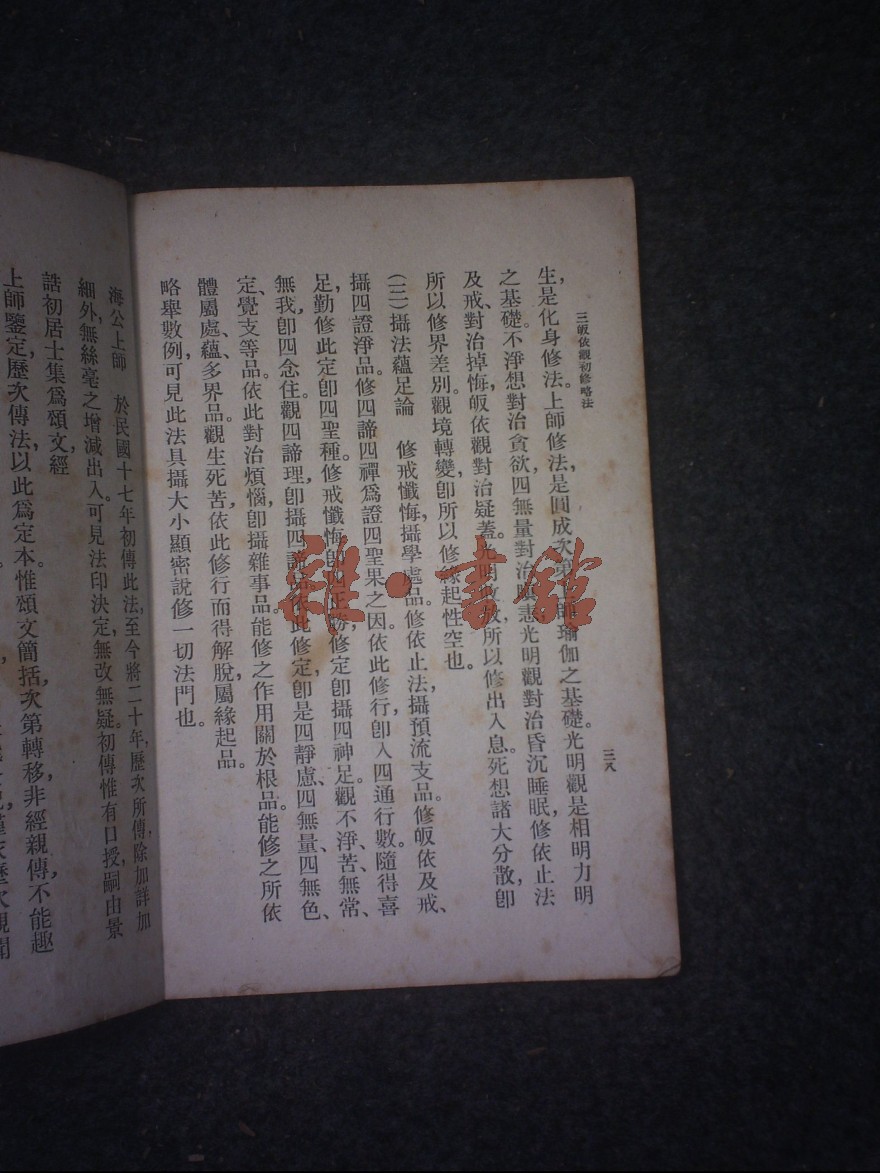 三皈依觀初修略法
三八
生是化身修法。上師修法，是圓成次第上師瑜伽之基礎。光明觀是相明力明
之基礎。不淨想對治貪欲，四無量對治瞋恚，光明觀對治昏沉睡眠，修依止法
及戒，對治掉悔，皈依觀對治疑蓋。光明收放，所以修出入息。死想諸大分散，卽
所以修界差別。觀境轉變卽所以修緣起性空也。
(二)攝法蘊足論　修戒懺悔攝學處品。修依止法攝預流支品。修皈依及戒、
攝四證淨品。修四諦四禪爲證四聖果之因。依此修行，卽入四通行數。隨得喜
足，勤修此定卽四聖種。修戒懺悔卽四正勝。修定卽攝四神足。觀不淨、苦、無常、
無我，卽四念住。觀四諦理，卽攝四諦品。依此修定，卽是四靜慮、四無量、四無色、
定、覺支等品。依此對治煩惱，卽攝雜事品。能修之作用關於根品。能修之所依
體屬處、蘊、多界品。觀生死苦，依此修行而得解脫，屬緣起品。
略舉數例，可見此法具攝大小顯密說修一切法門也。
海公上師　於民國十七年初傳此法，至今將二十年，歷次所傳，除加詳加
細外，無絲毫之增減出入。可見法印決定，無改無疑。初傳惟有口授，嗣由景
誥初居士集爲頌文，經
上師鑒定，歷次傳法，以此爲定本。惟頌文簡括，次第轉移，非經親傳，不能趣
雜·書館